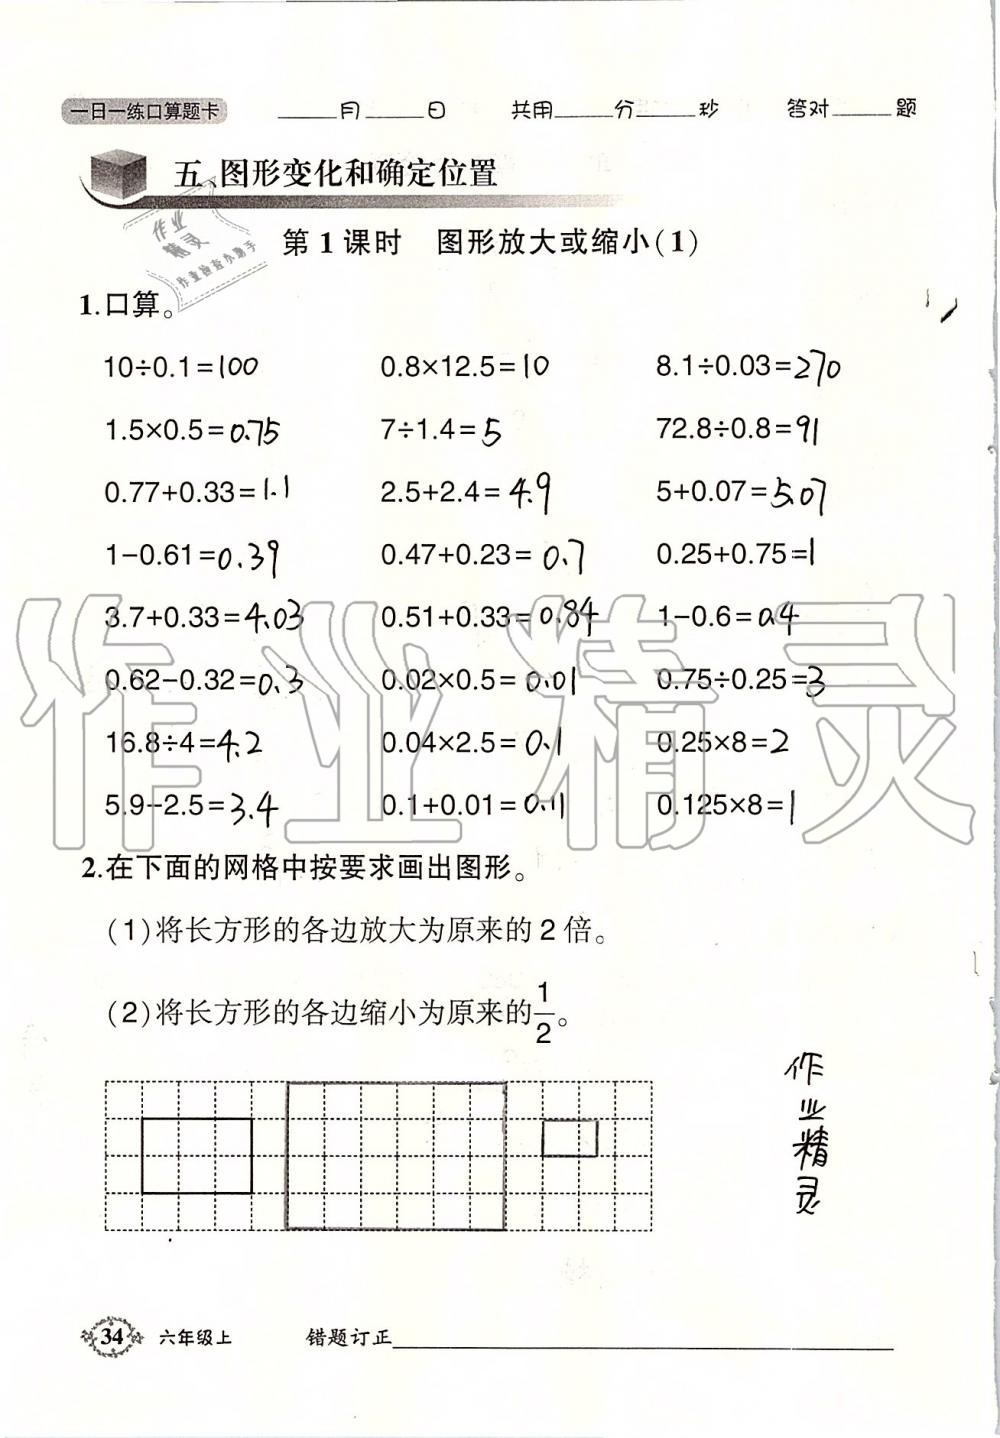 一日一练口算题卡 ____月____日 共用____分____秒 答对____题
五、图形变化和确定位置
作业
精灵
作业检查小助手
第1课时 图形放大或缩小(1)
1.口算。
10÷0.1=100 0.8×12.5=10 8.1÷0.03=270
1.5×0.5=0.75 7÷1.4=5 72.8÷0.8=91
0.77+0.33=1.1 2.5+2.4=4.9 5+0.07=5.07
1-0.61=0.39 0.47+0.23=0.7 0.25+0.75=1
3.7+0.33=4.03 0.51+0.33=0.84 1-0.6=0.4
0.62-0.32=0.3 0.02×0.5=0.01 0.75÷0.25=3
16.8÷4=4.2 0.04×2.5=0.1 0.25×8=2
5.9-2.5=3.4 0.1+0.01=0.11 0.125×8=1
作业精灵
2.在下面的网格中按要求画出图形。
(1)将长方形的各边放大为原来的2倍。
(2)将长方形的各边缩小为原来的1/2。
作
业
精
灵
34 六年级上 错题订正____